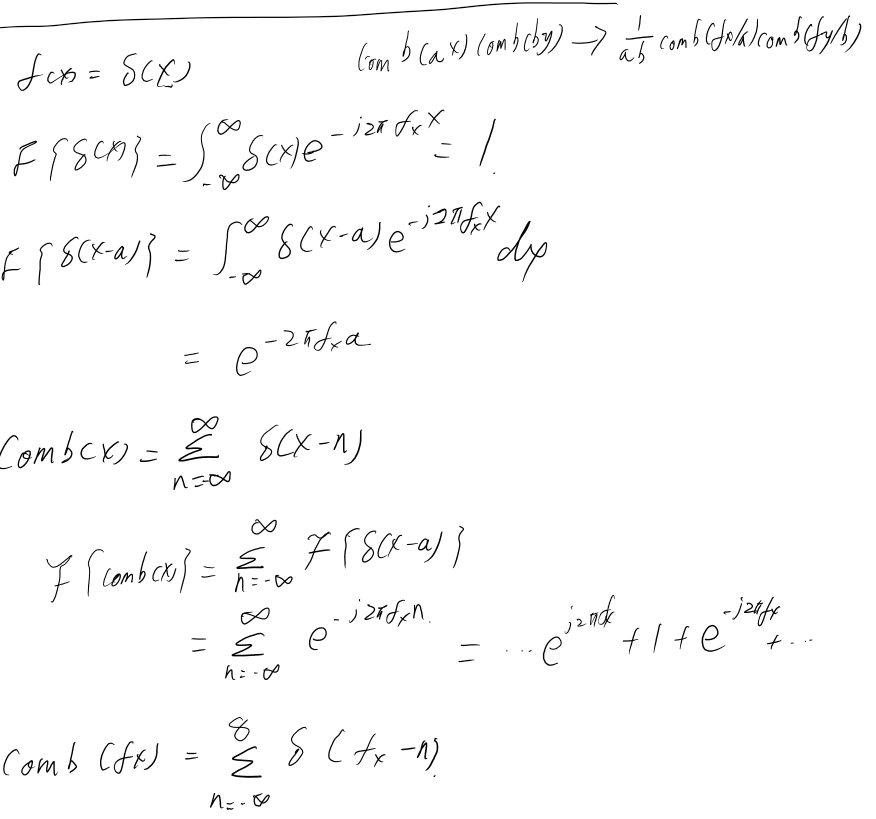 Comb(ax)comb(by) → 1/ab comb(fx/a)comb(fy/b)
f(x) = δ(x)
F{δ(x)} = ∫_{-∞}^{∞} δ(x)e^{-j2π f_x x} = 1.
F{δ(x-a)} = ∫_{-∞}^{∞} δ(x-a)e^{-j2πf_x x} dx
= e^{-2πf_x a}
Comb(x) = Σ_{n=-∞}^{∞} δ(x-n)
F{comb(x)} = Σ_{n=-∞}^{∞} F{δ(x-a)}
= Σ_{n=-∞}^{∞} e^{-j2πf_x n} = ... e^{j2πfx} + 1 + e^{-j2πfx} + ...
Comb(fx) = Σ_{n=-∞}^{∞} δ(f_x - n)